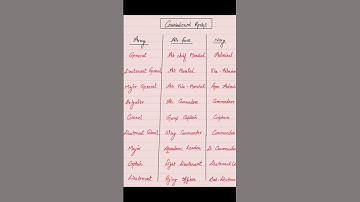 Commissioned Ranks
Army Air Force Navy
General Air Chief Marshal Admiral
Lieutenant General Air Marshal Vice-Admiral
Major General Air Vice-Marshal Rear Admiral
Brigadier Air Commodore Commodore
Colonel Group Captain Captain
Lieutenant Colonel Wing Commander Commander
Major Squadron Leader Lt Commander
Captain Flight Lieutenant Lieutenant
Lieutenant Flying Officer Sub-Lieutenant